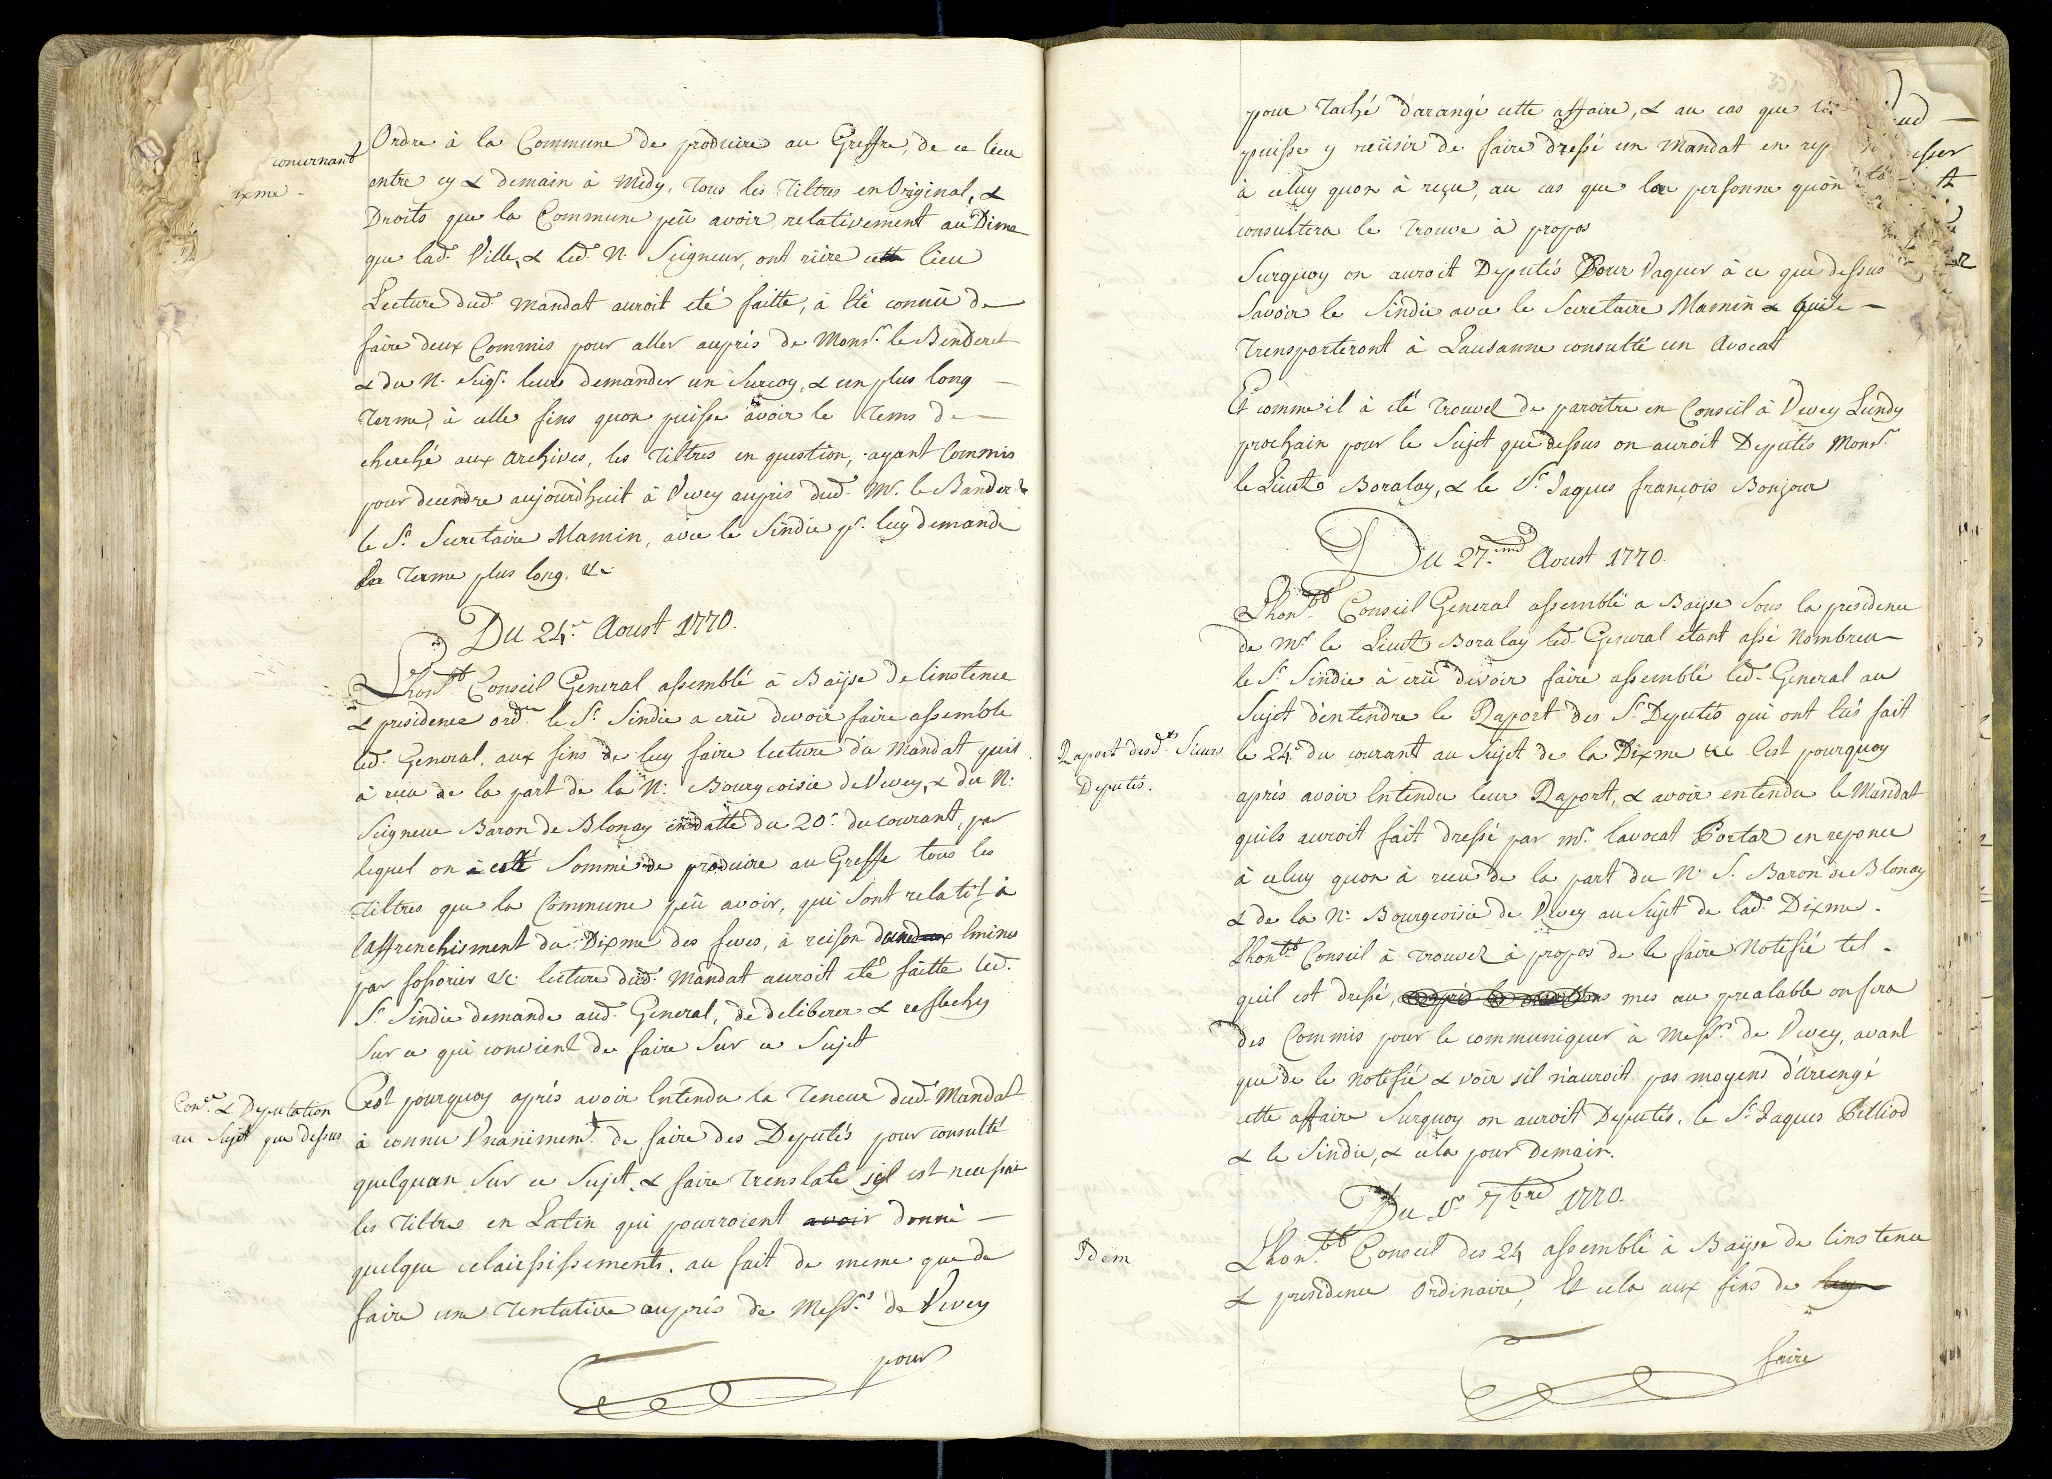 concernant
ixme
Ordre à la Commune de produire au Greffe, de ce lieu
entre cy & demain à Midy, tous les Tiltres en Original, &
Droits que la Commune peû avoir relativement au Dime
que lad. Ville, & led. N. Seigneur, ont riére cette lieu
Lecture dud. Mandat auroit eté faitte, à êté connû de
faire deux Commis pour aller auprés de Mons.r le Benderet
& du N. Seig.r leurs demander un Surcoy, & un plus long
Terme, à celle fins quon puisse avoir le Tems de
cherché aux Archives, les Tiltres en question, ayant Commis
pour decendre aujourdhuit à Vevey auprés dud. Mr. le Banderet
le Sr. Secretaire Mamin, avec le Sindic pr. luy demandé
Terme plus long. &c
Du 24.e Aoust 1770.
Lhon.ble Conseil General assemblé à Baÿse de linstence
& presidence ord.re le Sr. Sindic a crû devoir faire assemblé
led. General, aux fins de luy faire lecture du Mandat quil
à reçu de la part de la N. Bourgeoisie de Vevey, & du N.
Seigneur Baron de Blonay en datte du 20.e du courant, par
lequel on à eté Sommé de produire au Greffe tous les
Tiltres que la Commune peû avoir, qui sont relatif à
laffrenchisment du Dixme des feves, à reison d emines
par fossorier &c lecture dud. Mandat auroit eté faitte led.
Sr. Sindic demande aud. General, de deliberer & reflechy
Sur ce qui convient de faire Sur ce Sujet
Con.ce & Deputation
au Sujet que dessus
Cest pourquoy aprés avoir Entendu la Teneur dud. Mandat
à connu Unanimem.t de faire des Deputés pour consulté
quelquun Sur ce Sujet, & faire Translaté sil est necessaire
les Tiltres en Latin qui pourroient avoir donné
quelque eclaircissements. au fait de meme que de
faire une Tentative auprés de Mess.rs de Vevey
pour
pour Taché darangé cette affaire, & au cas que
puisse y reüisir de faire dressé un Mandat en rep
à celuy quon à reçue, au cas que la personne quon
consultera le Trouve à propos
Surquoy on auroit Deputés Pour Vaquer à ce que dessus
Savoir le Sindic avec le Secretaire Mamin & quils
Trensporteront à Lausanne consulté un Avocat
Et comme il à eté Trouvé de paroitre en Conseil à Vevey Lundy
prochain pour le Sujet que dessus on auroit Deputés Mons.r
le Lieut. Boralay, & le Sr. Jaques francois Bonjour
Du 27.eme Aoust 1770.
Lhon.ble Conseil General assemblé a Baÿse Sous la presidence
de Mr. le Lieut. Boralay led. General étant assé Nombreu
le Sr. Sindic à crû devoir faire assemblé led. General au
Sujet d'entendre le Raport des Srs. Deputés qui ont étés fait
Raport desd.ts Sieurs
Deputés.
le 24.e du courant au Sujet de la Dixme &c Cest pourquoy
aprés avoir Entendu leur Raport, & avoir entendu le Mandat
quils auroit fait dressé par Mr. lavocat Portaz en reponce
à celuy quon à reçu de la part du N. S. Baron de Blonay
& de la N. Bourgeoisie de Vevey au Sujet de lad. Dixme.
Lhon.ble Conseil à Trouvé à propos de le faire Notifié tel
quil est dressé, mes au prealable on fera
des Commis pour le communiquer à Mess.rs de Vevey, avant
que de le notifié & voir sil n'auroit pas moyens d'arengé
cette affaire Surquoy on auroit Deputés. le Sr. Jaques Pilliod
& le Sindic, & cela pour demain.
Du 1.er 7bre 1770.
Idem
Lhon.ble Conseil des 24 assemblé à Baÿse de linstence
& presidence Ordinaire, Et cela aux fins de luy
faire